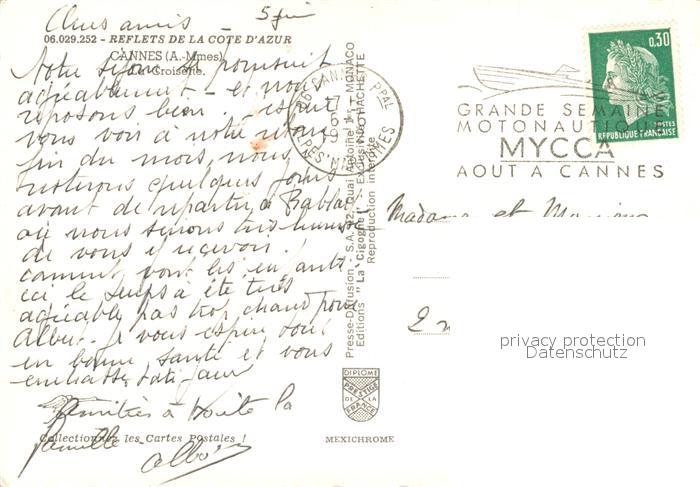 Chers amis - 5 juin
06.029.252 - REFLETS DE LA COTE D'AZUR
CANNES (A.-Mmes)
La Croisette.
Notre séjour se poursuit
agréablement - et nous
reposons bien - espère
vous voir à notre retour
fin du mois, nous
resterons quelques jours
avant de repartir à
où nous serions très heureux
de vous y recevoir.
comment vont les enfants
ici le temps a été très
agréable pas trop chaud pour
Albert. Je vous espère tous
en bonne santé et vous
embrasse
Amitiés à toute la
famille
Collectionnez les Cartes Postales !
MEXICHROME
DIPLOME
PRESTIGE
DE LA
FRANCE
Presse-Diffusion - S.A. 12, Quai Antoine 1er - MONACO
Editions "La Cigogne" - Exclusivité HACHETTE
Reproduction interdite
CANNES PPAL
ALPES MMES
GRANDE SEMAINE
MOTONAUTIQUE
MYCCA
AOUT A CANNES
0,30
POSTES
REPUBLIQUE FRANÇAISE
Madame et Monsieur
privacy protection
Datenschutz